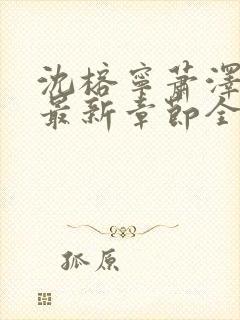 沈榕寧蕭澤
最新章節全
孤原